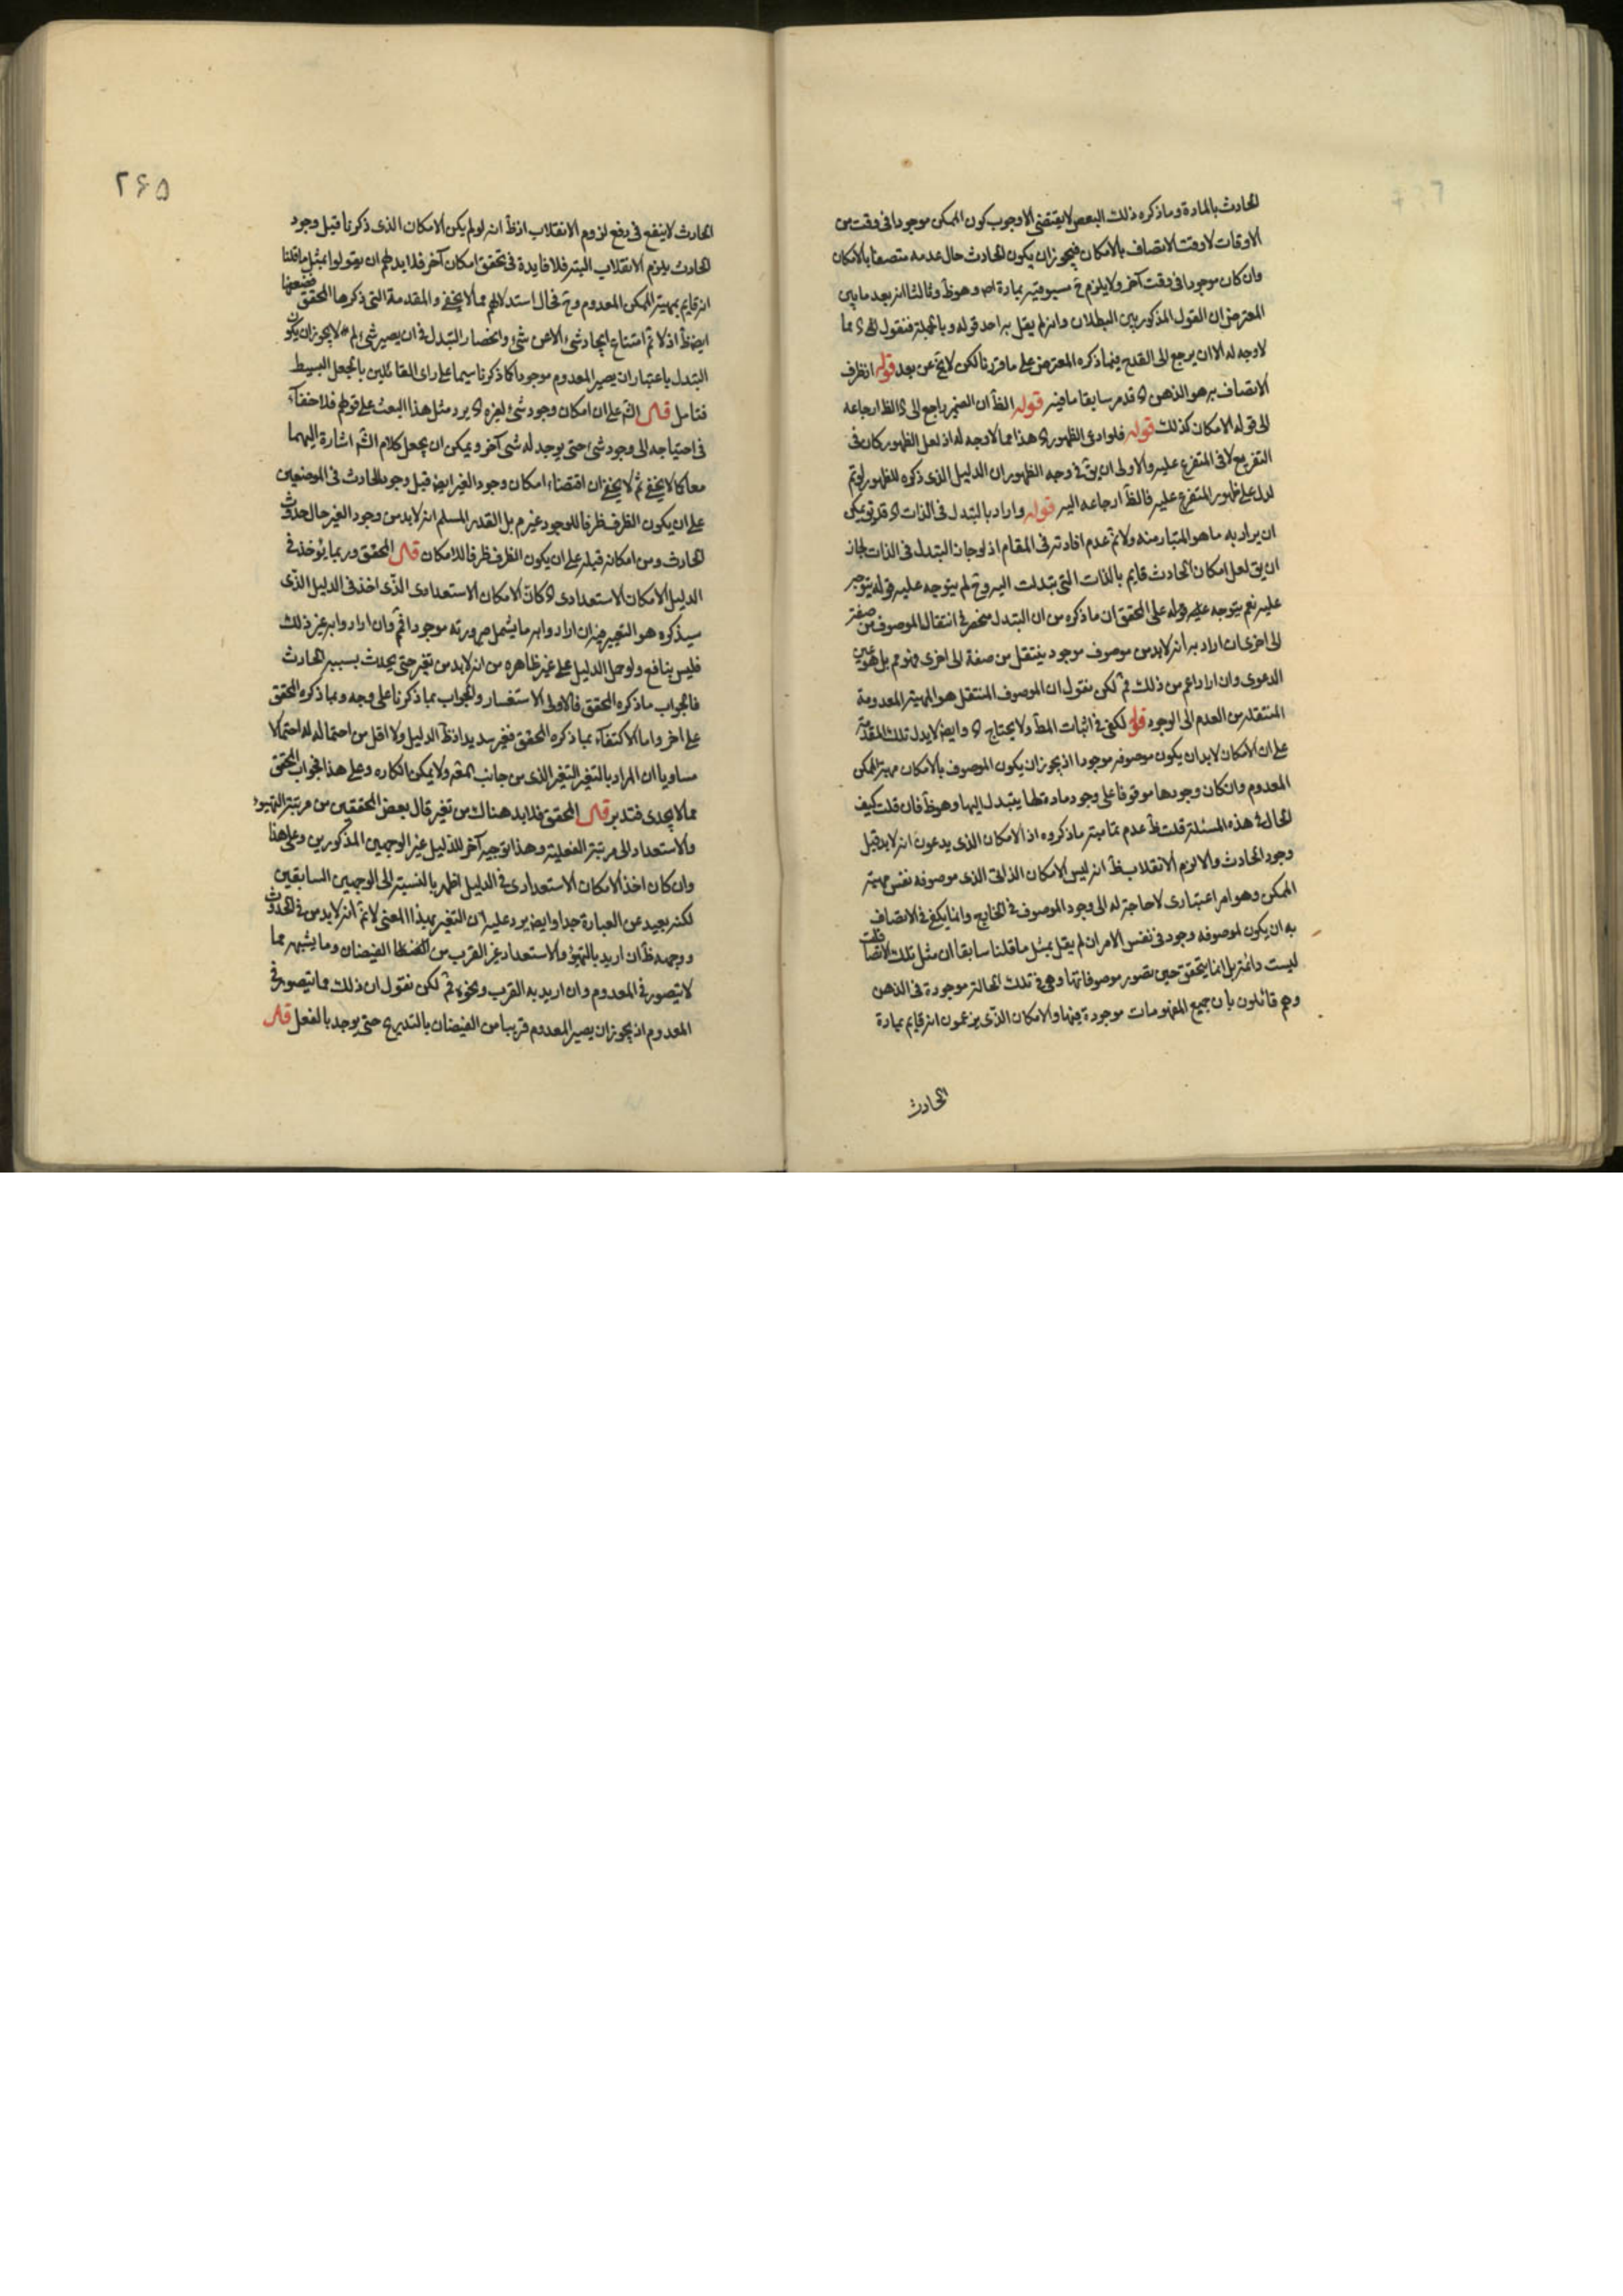 الحادث بالمادة وما ذكره ذلك البعض لا يقتضى الا وجوب كون الممكن موجودا فى وقت من
الاوقات لا وقت الاتصاف بالامكان فيجوز ان يكون الحادث حال عدمه متصفا بالامكان
وان كان موجودا فى وقت آخر ولا يلزم ح مسبوقيته بمادة اصم وهو ظ وثالثا انه بعد ما بين
المعترض ان القول المذكور بين البطلان وانه لم يقل به احد قوله وبالجملة فنقول الخ مما
لا وجه له الا ان يرجع الى القدح فيما ذكره المعترض على ما قررنا لكن لا يخ عن بعد قوله ان ظرف
الاتصاف به هو الذهن اه قد مر سابقا ما فيه قوله الظ ان الضمير راجع الى اه الظ ارجاعه
الى قوله الامكان كذلك قوله فلو ادعى الظهور اه هذا مما لا وجه له اذ لعل الظهور كان فى
التفريع لا فى المتفرع عليه والاولى ان يق فى وجه الظهور ان الدليل الذى ذكره للظهور لو تم
لدل على ظهور المتفرع عليه فالظ ارجاعه اليه قوله واراد بالتبدل فى الذات اه قد يق يمكن
ان يراد به ما هو المتبادر منه ولا نم عدم افادته فى المقام اذ لو جاز التبدل فى الذات لجاز
ان يق لعل امكان الحادث قايم بالذات التى تبدلت اليه وح لم يتوجه عليه قوله يتوجه
عليه نعم يتوجه عليه قوله على المحقق ان ما ذكره من ان التبدل منحصر فى انتقال الموصوف من صفة
الى اخرى ان اراد به انه لا بد من موصوف موجود ينتقل من صفة الى اخرى فهو مم بل هو عين
الدعوى وان اراد اعم من ذلك فم لكن نقول ان الموصوف المنتقل هو المهية المعدومة
المنتقلة من العدم الى الوجود قوله لكفى فى اثبات المط ولا يحتاج اه وايض لا يدل تلك المقدمة
على ان الامكان لا بد ان يكون موصوفه موجودا اذ يجوز ان يكون الموصوف بالامكان مهية الممكن
المعدوم وان كان وجودها موقوفا على وجود مادة لها يتبدل اليها وهو ظ فان قلت كيف
الحال فى هذه المسئلة قلت ظ عدم تمامية ما ذكروه اذ الامكان الذى يدعون انه لا بد قبل
وجود الحادث والا لزم الانقلاب ظ انه ليس الامكان الذاتى الذى موصوفه نفس مهية
الممكن وهو امر اعتبارى لا حاجة له الى وجود الموصوف فى الخارج وانما يكفى فى الاتصاف
به ان يكون لموصوفه وجود فى نفس الامر ان لم يقل بمثل ما قلنا سابقا ان مثل تلك الاتصافات
ليست دائمة بل انما يتحقق حين تصور موصوفاتها وهى فى تلك الحالة موجودة فى الذهن
وهم قائلون بان جميع المفهومات موجودة فيها والامكان الذى يزعمون انه قايم بمادة
الحادث
٢۶۵
الحادث لا ينفع فى دفع لزوم الانقلاب اذ ظ انه لو لم يكن الامكان الذى ذكرنا قبل وجود
الحادث يلزم الانقلاب البتة فلا فايدة فى تحقق امكان آخر فلا بد لهم ان يقولوا بمثل ما قلنا
انه قايم بمهية الممكن المعدوم وح فحال استدلالهم مما لا يخفى والمقدمة التى ذكرها المحقق فضعفها
ايض ظ اذ لا نم امتناع ايجاد شئ الا عن شئ وانحصار التبدل فى ان يصير شئ لم لا يجوز ان يكون
التبدل باعتبار ان يصير المعدوم موجودا كما ذكرنا سيما على راى القائلين بالجعل البسيط
فتامل قال الش على ان امكان وجود شئ لغيره اه يرد مثل هذا البحث على قولهم فلا خفاء
فى احتياجه الى وجود شئ حتى يوجد له شئ آخر ويمكن ان يجعل كلام الش اشارة اليهما
معا كما لا يخفى ثم لا يخفى ان اقتضاء امكان وجود الغير ايض قبل وجود الحادث فى الموضعين
على ان يكون الظرف ظرفا للوجود غير مم بل القدر المسلم انه لا بد من وجود الغير حال حدوث
الحادث ومن امكانه قبله على ان يكون الظرف ظرفا للامكان قال المحقق وربما يؤخذ فى
الدليل الامكان الاستعدادى اه كان الامكان الاستعدادى الذى اخذ فى الدليل الذى
سيذكره هو التغير فيه ان ارادوا به ما يشمل صيرورته موجودا فم وان ارادوا به غير ذلك
فليس بنافع ولو حمل الدليل على غير ظاهره من انه لا بد من تغير حتى يحدث بسببه الحادث
فالجواب ما ذكره المحقق فالاولى الاستفسار والجواب بما ذكرنا على وجه وبما ذكره المحقق
على اخر واما الاكتفاء بما ذكره المحقق فغير سديد اذ ظ الدليل ولا اقل من احتماله له احتمالا
مساويا ان المراد بالتغير التغير الذى من جانب المعد ولا يمكن انكاره وعلى هذا فجواب المحقق
مما لا يجدى فتدبر قال المحقق فلا بد هناك من تغير قال بعض المحققين من مرتبة التهيؤ
والاستعداد الى مرتبة الفعلية وهذا توجيه آخر للدليل غير الوجهين المذكورين وعلى هذا
وان كان اخذ الامكان الاستعدادى فى الدليل اظهر بالنسبة الى الوجهين السابقين
لكنه بعيد عن العبارة جدا وايض يرد عليه ان التغير بهذا المعنى لا نم انه لا بد من فى الحدوث
ووجهه ظ ان اريد بالتهيؤ والاستعداد غير القرب من الفيضان وما يشبهه مما
لا يتصور فى المعدوم وان اريد به القرب ونحوه فم لكن نقول ان ذلك مما يتصور فى
المعدوم اذ يجوز ان يصير المعدوم قريبا من الفيضان بالتدريج حتى يوجد بالفعل قال